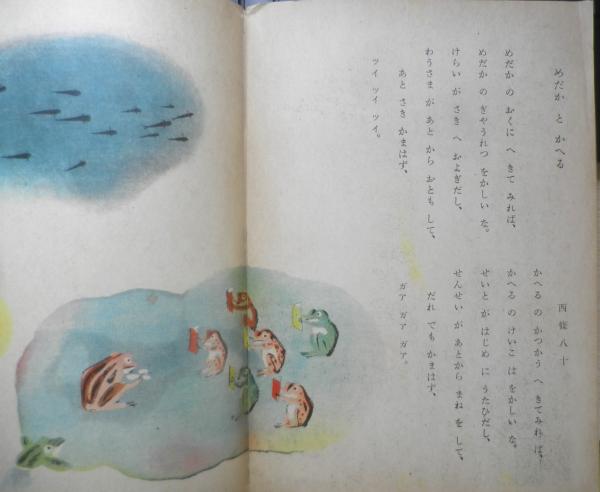 めだか と かへる
西條八十
めだか の おくに へ きて みれば、
めだか の ぎやうれつ をかしい な。
けらい が さき へ およぎだし、
わうさま が あと から おとも して、
あと さき かまはず、
ツイ ツイ ツイ。
かへる の がつかう へ きてみれ ば、
かへる の けいこ は をかしい な。
せいと が はじめ に うたひだし、
せんせい が あとから まね を して、
だれ でも かまはず、
ガア ガア ガア。